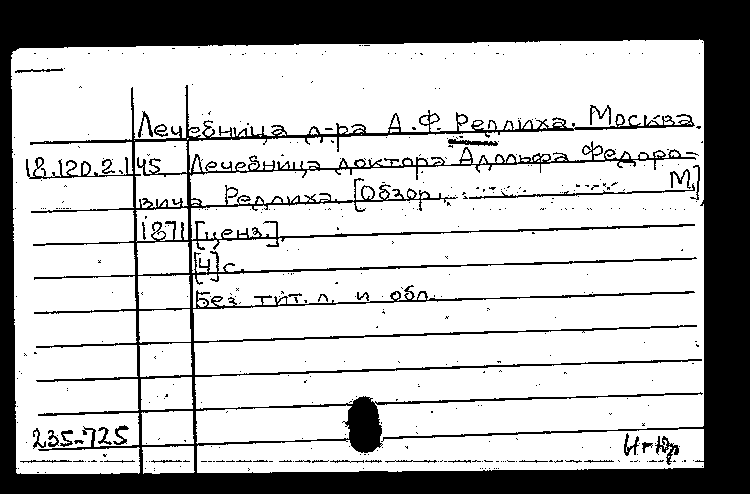 Лечебница д-ра А.Ф. Редлиха. Москва.
18.120.2.145 Лечебница доктора Адольфа Федоро-
вича Редлиха. [Обзор. М.]
1871 [ценз.].
[4] с.
Без тит. л. и обл.
235-725